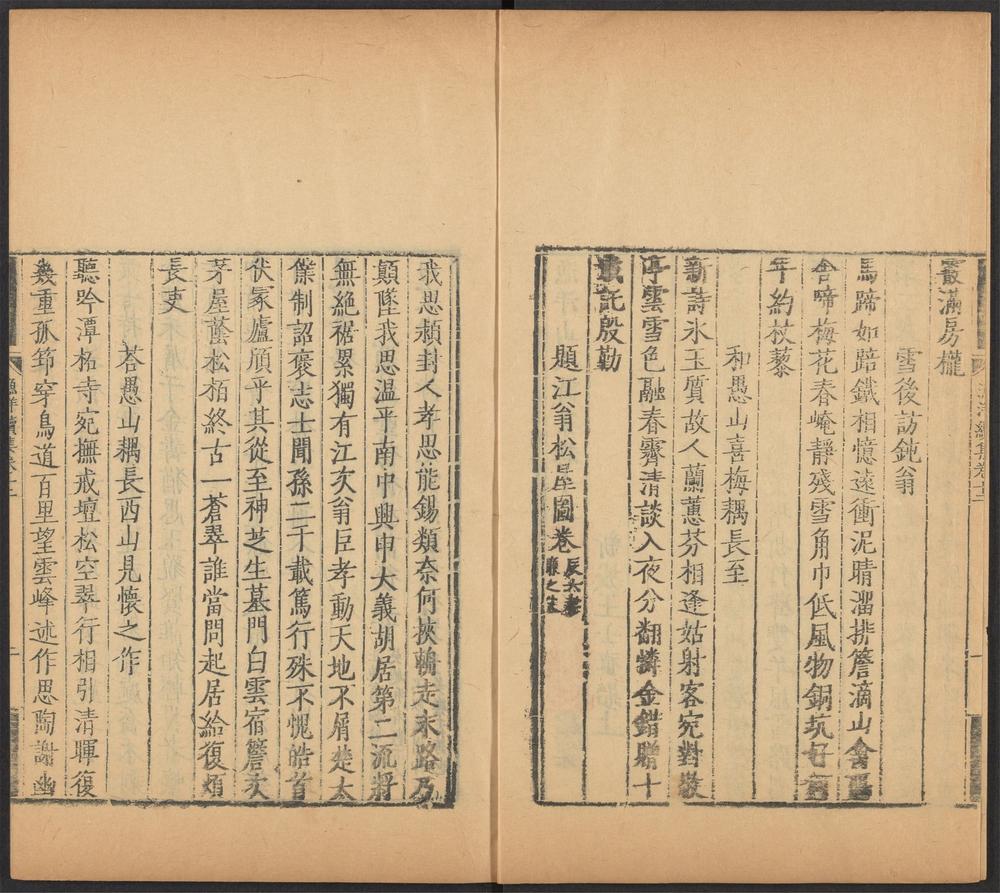 滿房櫳
雪後訪鈍翁
馬蹄如踣鐵相憶遠衝泥晴溜排簷滴山禽
舍啼梅花春崦靜殘雪角巾低風物銅坑好
年約杖藜
和愚山喜梅耦長至
新詩氷玉質故人蘭蕙芬相逢姑射客宛對敬
亭雲雪色融春霽清談入夜分翻憐金錯贈十
載託殷勤
題江翁松崖圖卷 辰六孝廉之
我思頴封人孝思能錫類奈何挾輈走末路乃
顛墜我思溫平南中興申大義胡居第二流將
無絶裾累獨有江次翁巨孝動天地不屑楚太
僕制詔褒志士聞孫二千載篤行殊不愧皓首
伏冢廬頎乎其從至神芝生墓門白雲宿簷次
茅屋蔭松栢終古一蒼翠誰當問起居給復煩
長吏
荅愚山耦長西山見懷之作
聽吟潭柘寺宛撫戒壇松空翠行相引清暉復
幾重孤筇穿鳥道百里望雲峰述作思陶謝幽